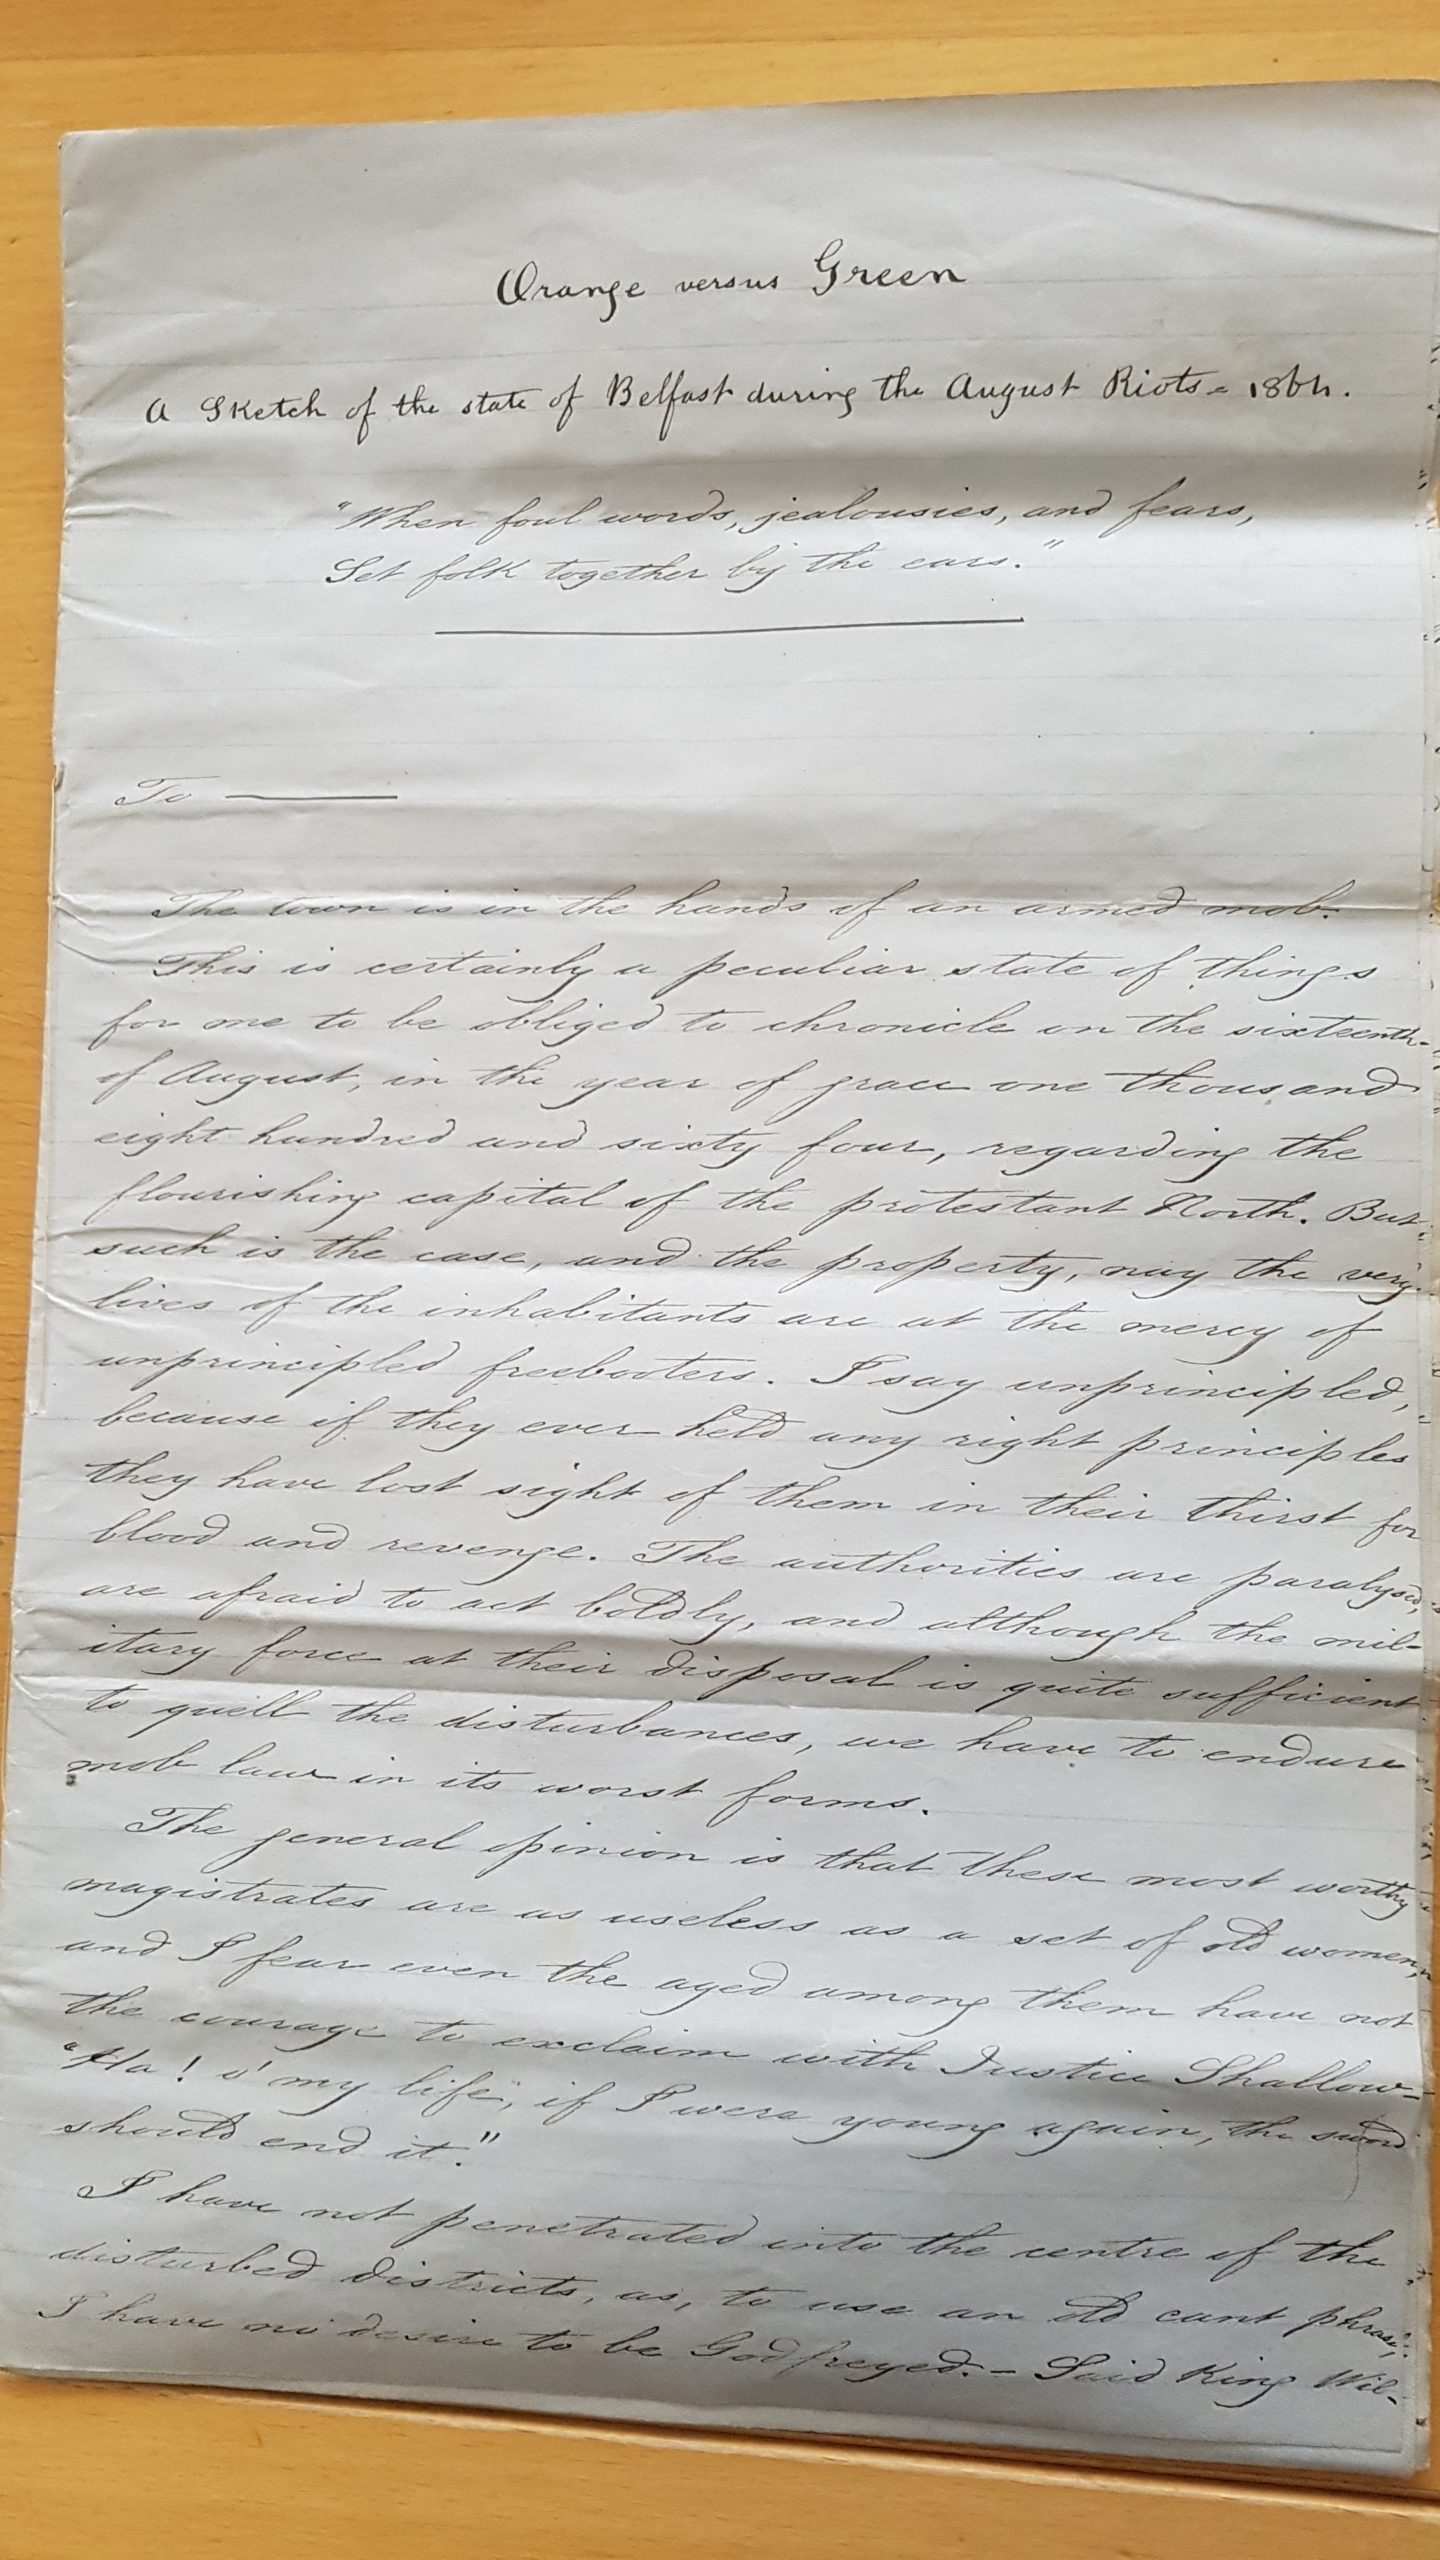 Orange versus Green
A Sketch of the state of Belfast during the August Riots - 1864.
"When foul words, jealousies, and fears,
Set folk together by the ears."
To ———
The town is in the hands of an armed mob.
This is certainly a peculiar state of things
for me to be obliged to chronicle on the sixteenth
of August, in the year of grace one thousand
eight hundred and sixty four, regarding the
flourishing capital of the protestant North. But
such is the case, and the property, nay the very
lives of the inhabitants are at the mercy of
unprincipled freebooters. I say unprincipled,
because if they ever held any right principles
they have lost sight of them in their thirst for
blood and revenge. The authorities are paralysed,
are afraid to act boldly, and although the mil-
itary force at their disposal is quite sufficient
to quell the disturbances, we have to endure
mob law in its worst forms.
The general opinion is that these most worthy
magistrates are as useless as a set of old women,
and I fear even the aged among them have not
the courage to exclaim with Justice Shallow-
"Ha! o' my life, if I were young again, the sword
should end it."
I have not penetrated into the centre of the
disturbed districts, as, to use an old cant phrase,
I have no desire to be Godfreyed. - Said King Wil-